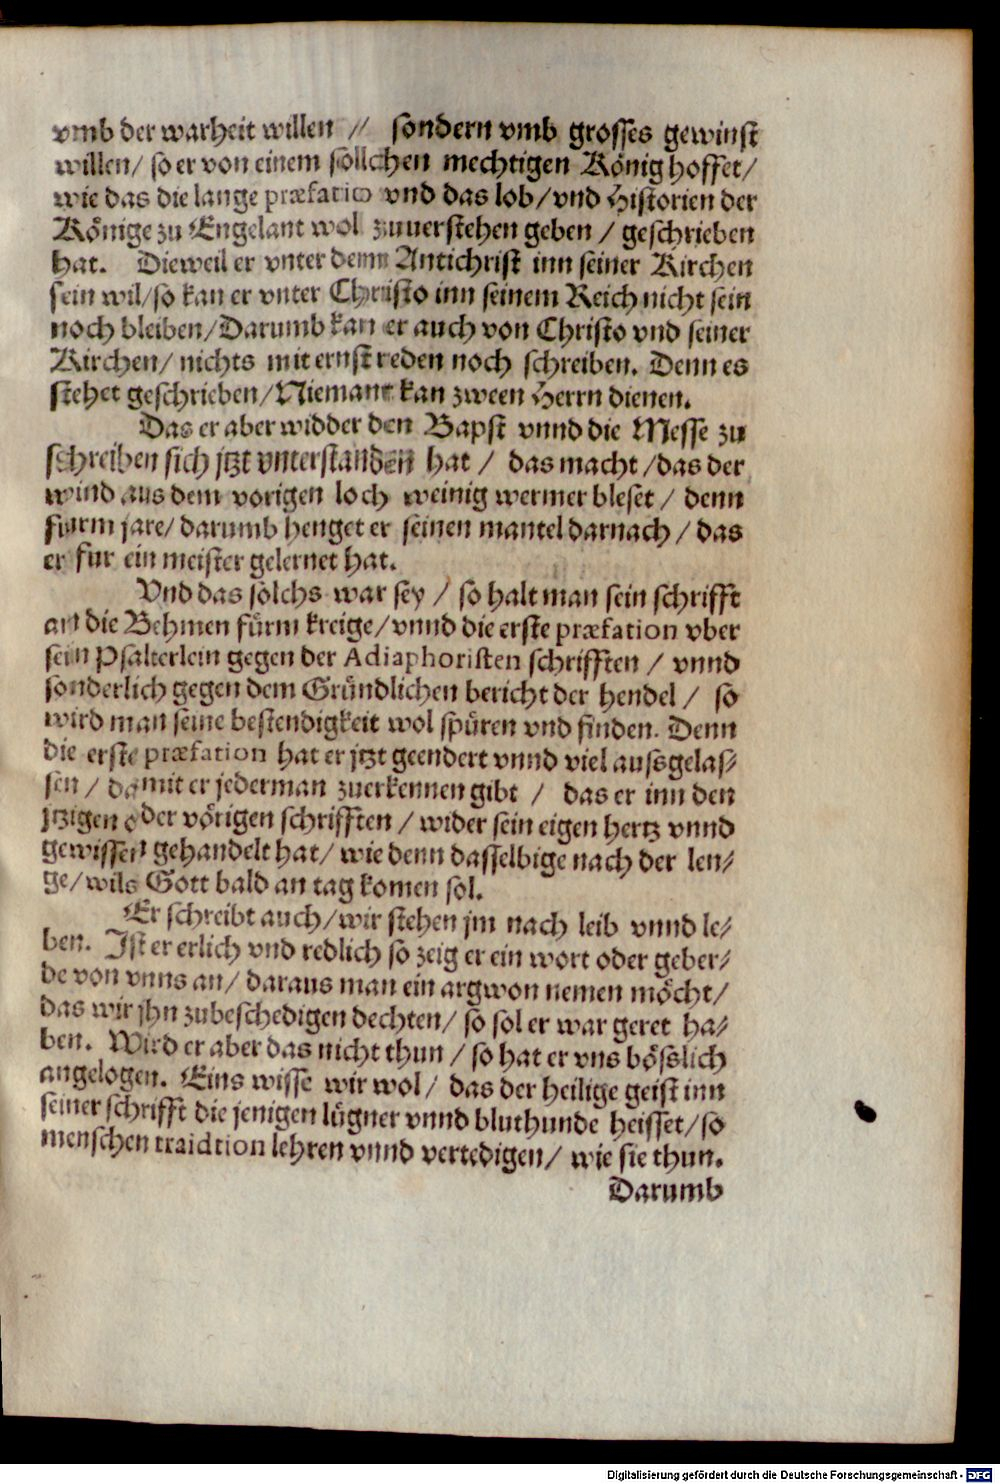 vmb der warheit willen // sondern vmb grosses gewinst
willen/ so er von einem söllchen mechtigen König hoffet/
wie das die lange præfatio vnd das lob/vnd Historien der
Könige zu Engelant wol zuuerstehen geben / geschrieben
hat. Dieweil er vnter dem Antichrist inn seiner Kirchen
sein wil/so kan er vnter Christo inn seinem Reich nicht sein
noch bleiben/Darumb kan er auch von Christo vnd seiner
Kirchen/ nichts mit ernst reden noch schreiben. Denn es
stehet geschrieben/Niemant kan zween Herrn dienen.
Das er aber widder den Bapst vnnd die Messe zu
schreiben sich jtzt vnterstanden hat / das macht /das der
wind aus dem vorigen loch weinig wermer bleset / denn
fürm jare/ darumb henget er seinen mantel darnach / das
er fur ein meister gelernet hat.
Vnd das sölchs war sey / so halt man sein schrifft
an die Behmen fürm kreige/vnnd die erste præfation vber
sein Psalterlein gegen der Adiaphoristen schrifften / vnnd
sonderlich gegen dem Gründlichen bericht der hendel / so
wird man seine bestendigkeit wol spüren vnd finden. Denn
die erste præfation hat er jtzt geendert vnnd viel aussgelas-
sen / damit er jederman zuerkennen gibt / das er inn den
jtzigen oder vörigen schrifften / wider sein eigen hertz vnnd
gewissen gehandelt hat/ wie denn dasselbige nach der len-
ge/wils Gott bald an tag komen sol.
Er schreibt auch/wir stehen jm nach leib vnnd le-
ben. Ist er erlich vnd redlich so zeig er ein wort oder geber-
de von vnns an/ daraus man ein argwon nemen möcht/
das wir jhn zubeschedigen dechten/ so sol er war geret ha-
ben. Wird er aber das nicht thun / so hat er vns bösslich
angelogen. Eins wisse wir wol/ das der heilige geist inn
seiner schrifft die jenigen lügner vnnd bluthunde heisset/so
menschen traidtion lehren vnnd vertedigen/ wie sie thun.
Darumb
Digitalisierung gefördert durch die Deutsche Forschungsgemeinschaft - DFG